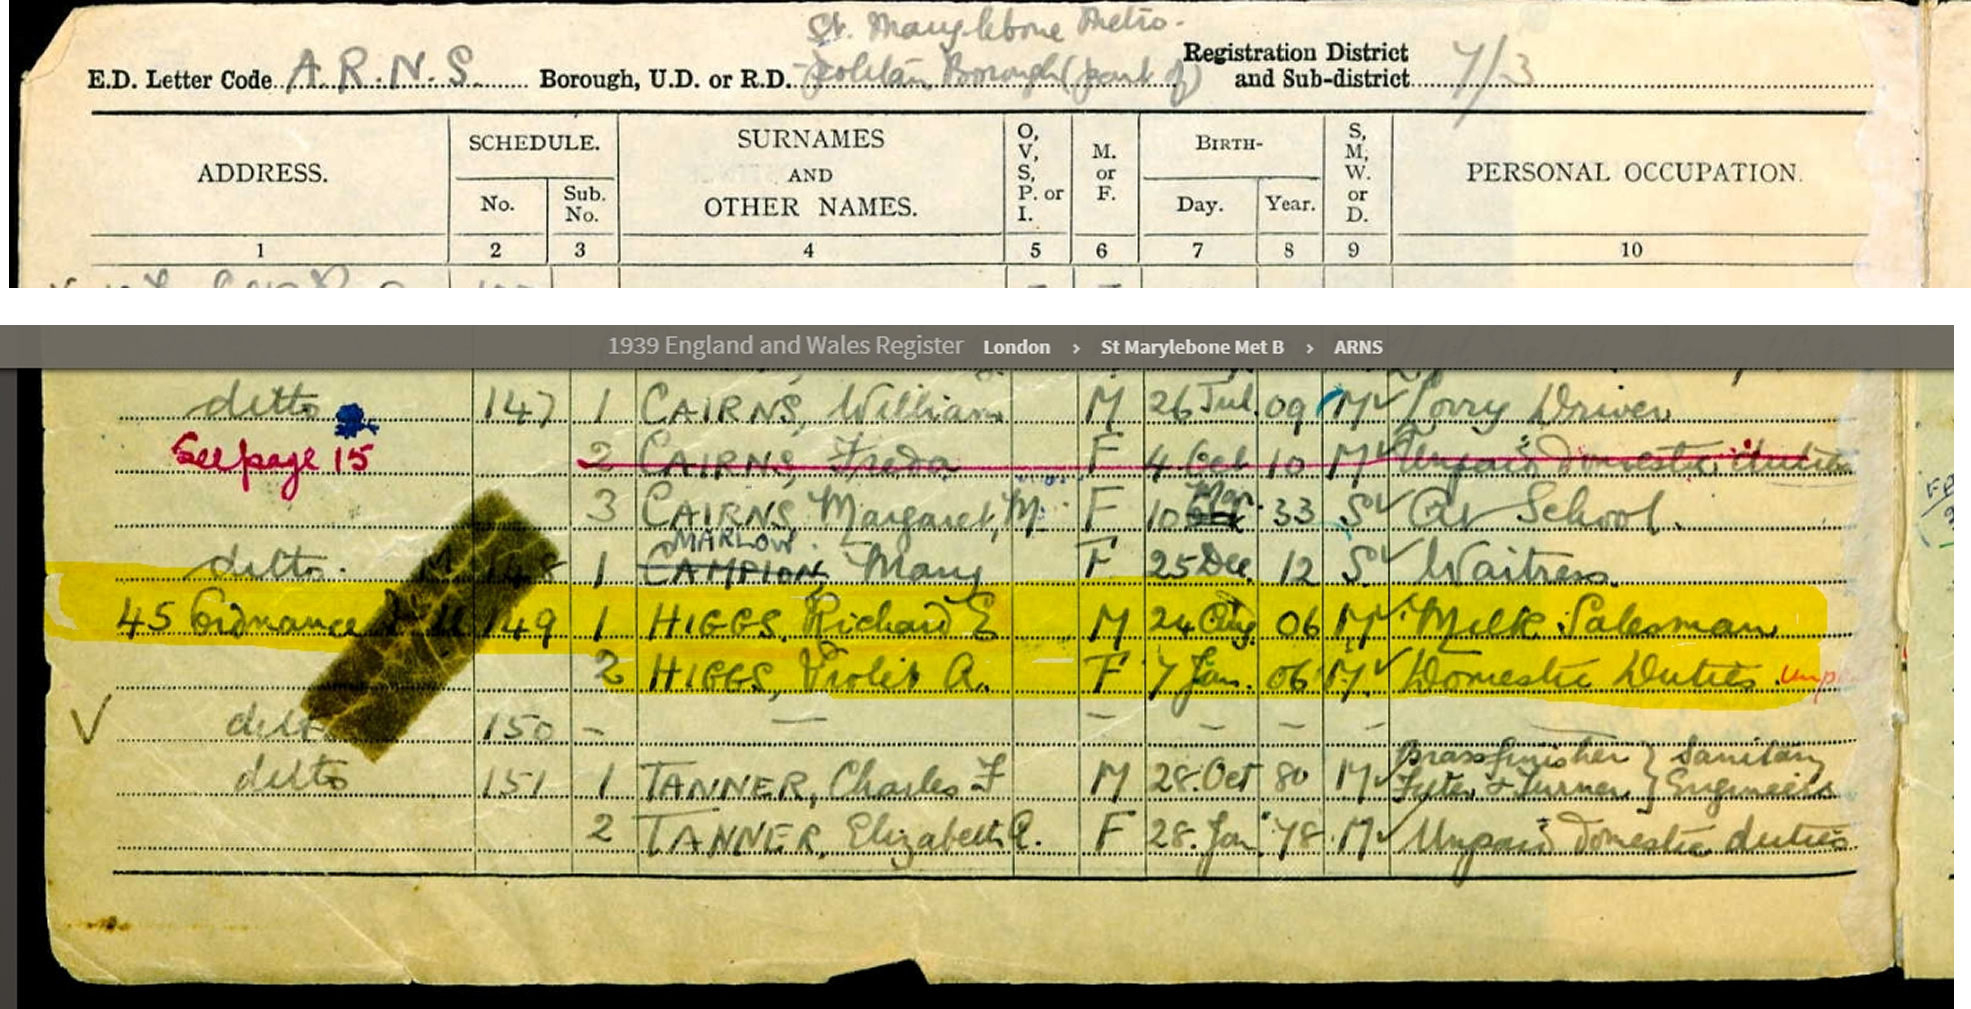 St. Marylebone Metro-
E.D. Letter Code A.R.N.S. Borough, U.D. or R.D. politan Borough (part of) Registration District and Sub-district 7/3
ADDRESS. SCHEDULE. SURNAMES AND OTHER NAMES. O, V, S, P. or I. M. or F. BIRTH- S, M, W. or D. PERSONAL OCCUPATION.
No. Sub. No. Day. Year.
1 2 3 4 5 6 7 8 9 10
1939 England and Wales Register London > St Marylebone Met B > ARNS
ditto 147 1 CAIRNS, William M 26 Jul 09 M Lorry Driver
See page 15 2 CAIRNS, Freda F 4 Oct 10 M Unpaid domestic duties
Mar
3 CAIRNS, Margaret, M. F 10 33 S At School.
MARLOW.
ditto. 148 1 CAMPION, Mary F 25 Dec 12 S Waitress
45 Ordnance 149 1 HIGGS, Richard E M 24 Aug. 06 M Milk Salesman
2 HIGGS, Violet A. F 7 Jan. 06 M Domestic Duties.
V ditto 150 - — - - - -
ditto 151 1 TANNER, Charles F M 28 Oct 80 M Brassfinisher Fitter & Turner } Sanitary Engineers
2 TANNER, Elizabeth A. F 28 Jan 78 M Unpaid domestic duties